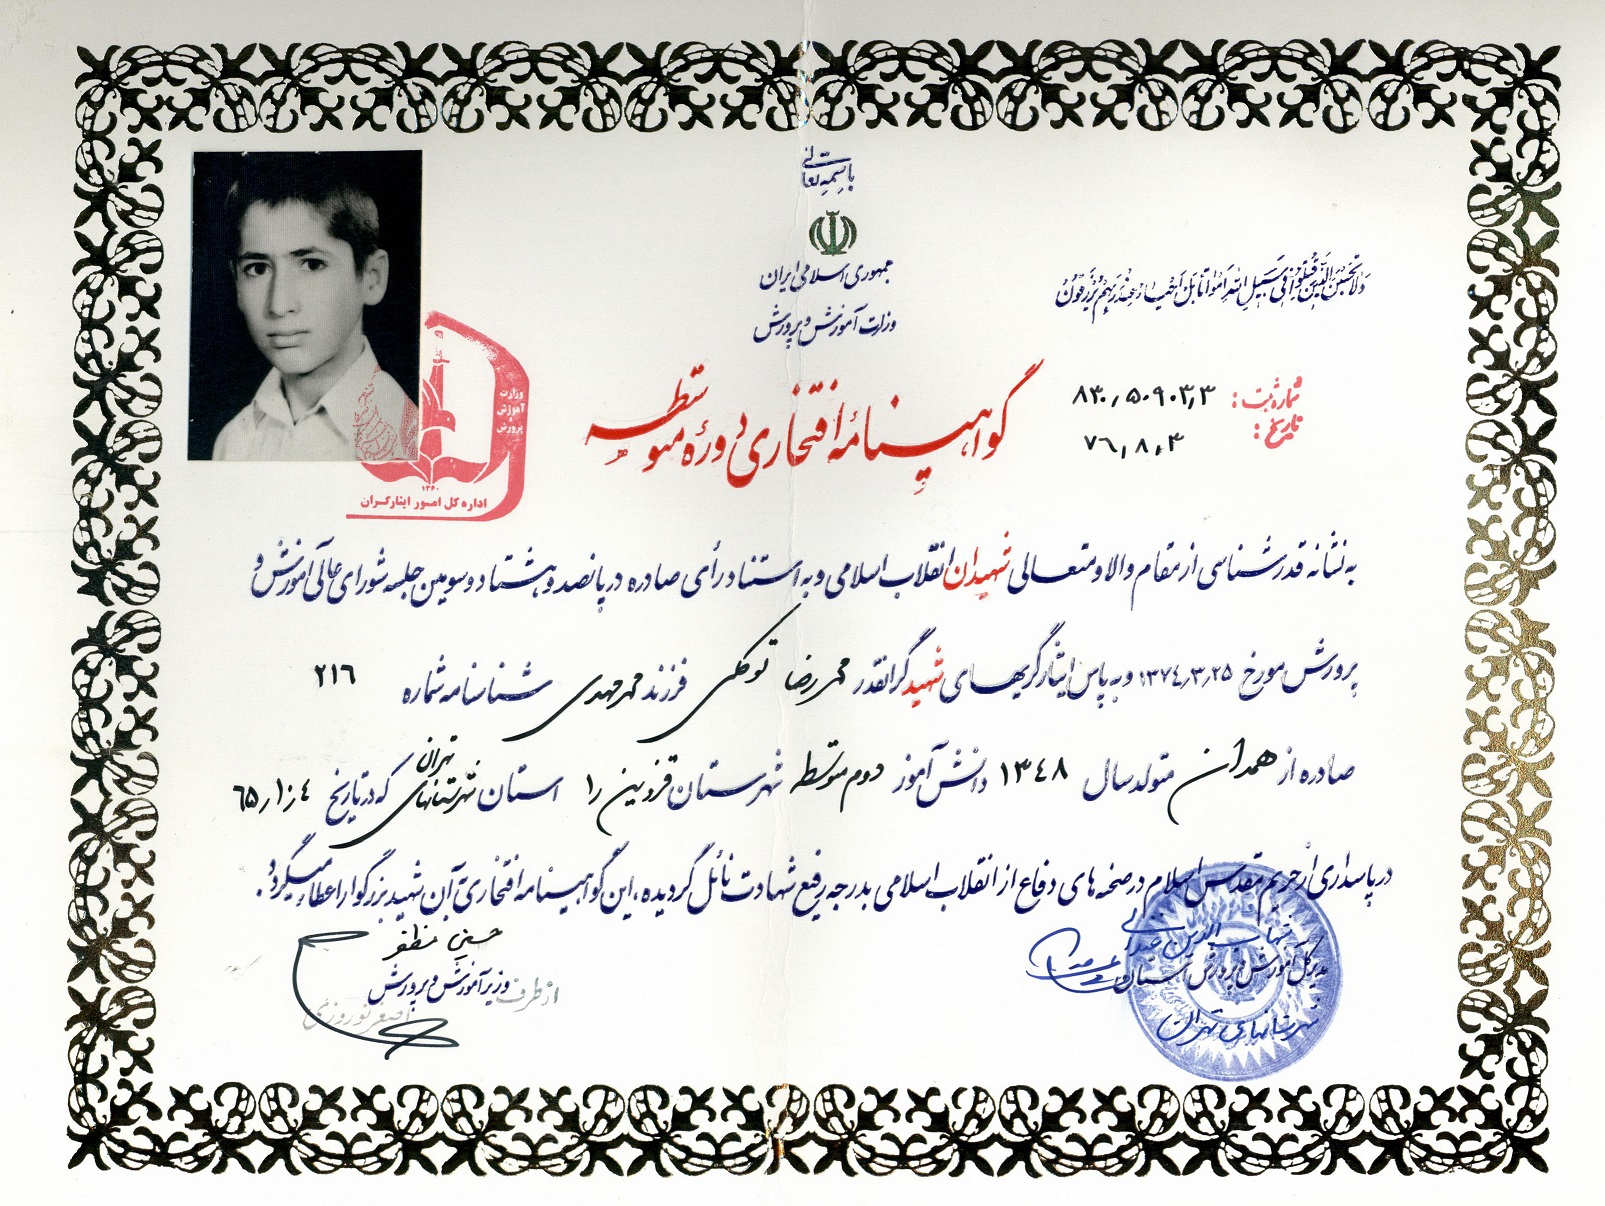 باسمه تعالی
جمهوری اسلامی ایران
وزارت آموزش و پرورش
ولا تحسبن الذین قتلوا فی سبیل الله امواتا بل احیاء عند ربهم یرزقون
شماره ثبت: ۸۳۰٫۵۰۹۰۳٫۳
تاریخ: ۷۶٫۸٫۳
گواهینامه افتخاری دوره متوسطه
وزارت
آموزش
پرورش
۱۳۶۰
اداره کل امور ایثارگران
به نشانه قدرشناسی از مقام والا و متعالی شهیدان انقلاب اسلامی و به استناد رأی صادره در پانصد و هشتاد و سومین جلسه شورای عالی آموزش و
پرورش مورخ ۱۳۷۴٫۳٫۲۵ و به پاس ایثارگریهای شهید گرانقدر محمدرضا توکلی فرزند محمدمهدی شناسنامه شماره ۲۱۶
صادره از همدان متولد سال ۱۳۴۸ دانش آموز دوم متوسطه شهرستان قزوین را استان شهرستانهای تهران که در تاریخ ۶۵٫۱۰٫۴
در پاسداری از حریم مقدس اسلام در صحنه های دفاع از انقلاب اسلامی بدرجه رفیع شهادت نائل گردیده، این گواهینامه افتخاری به آن شهید بزرگوار اعطاء میگردد.
شهاب الدین
مدیرکل آموزش و پرورش استان
شهرستانهای تهران
حسین مظفر
از طرف وزیر آموزش و پرورش
اصغر نوروزی